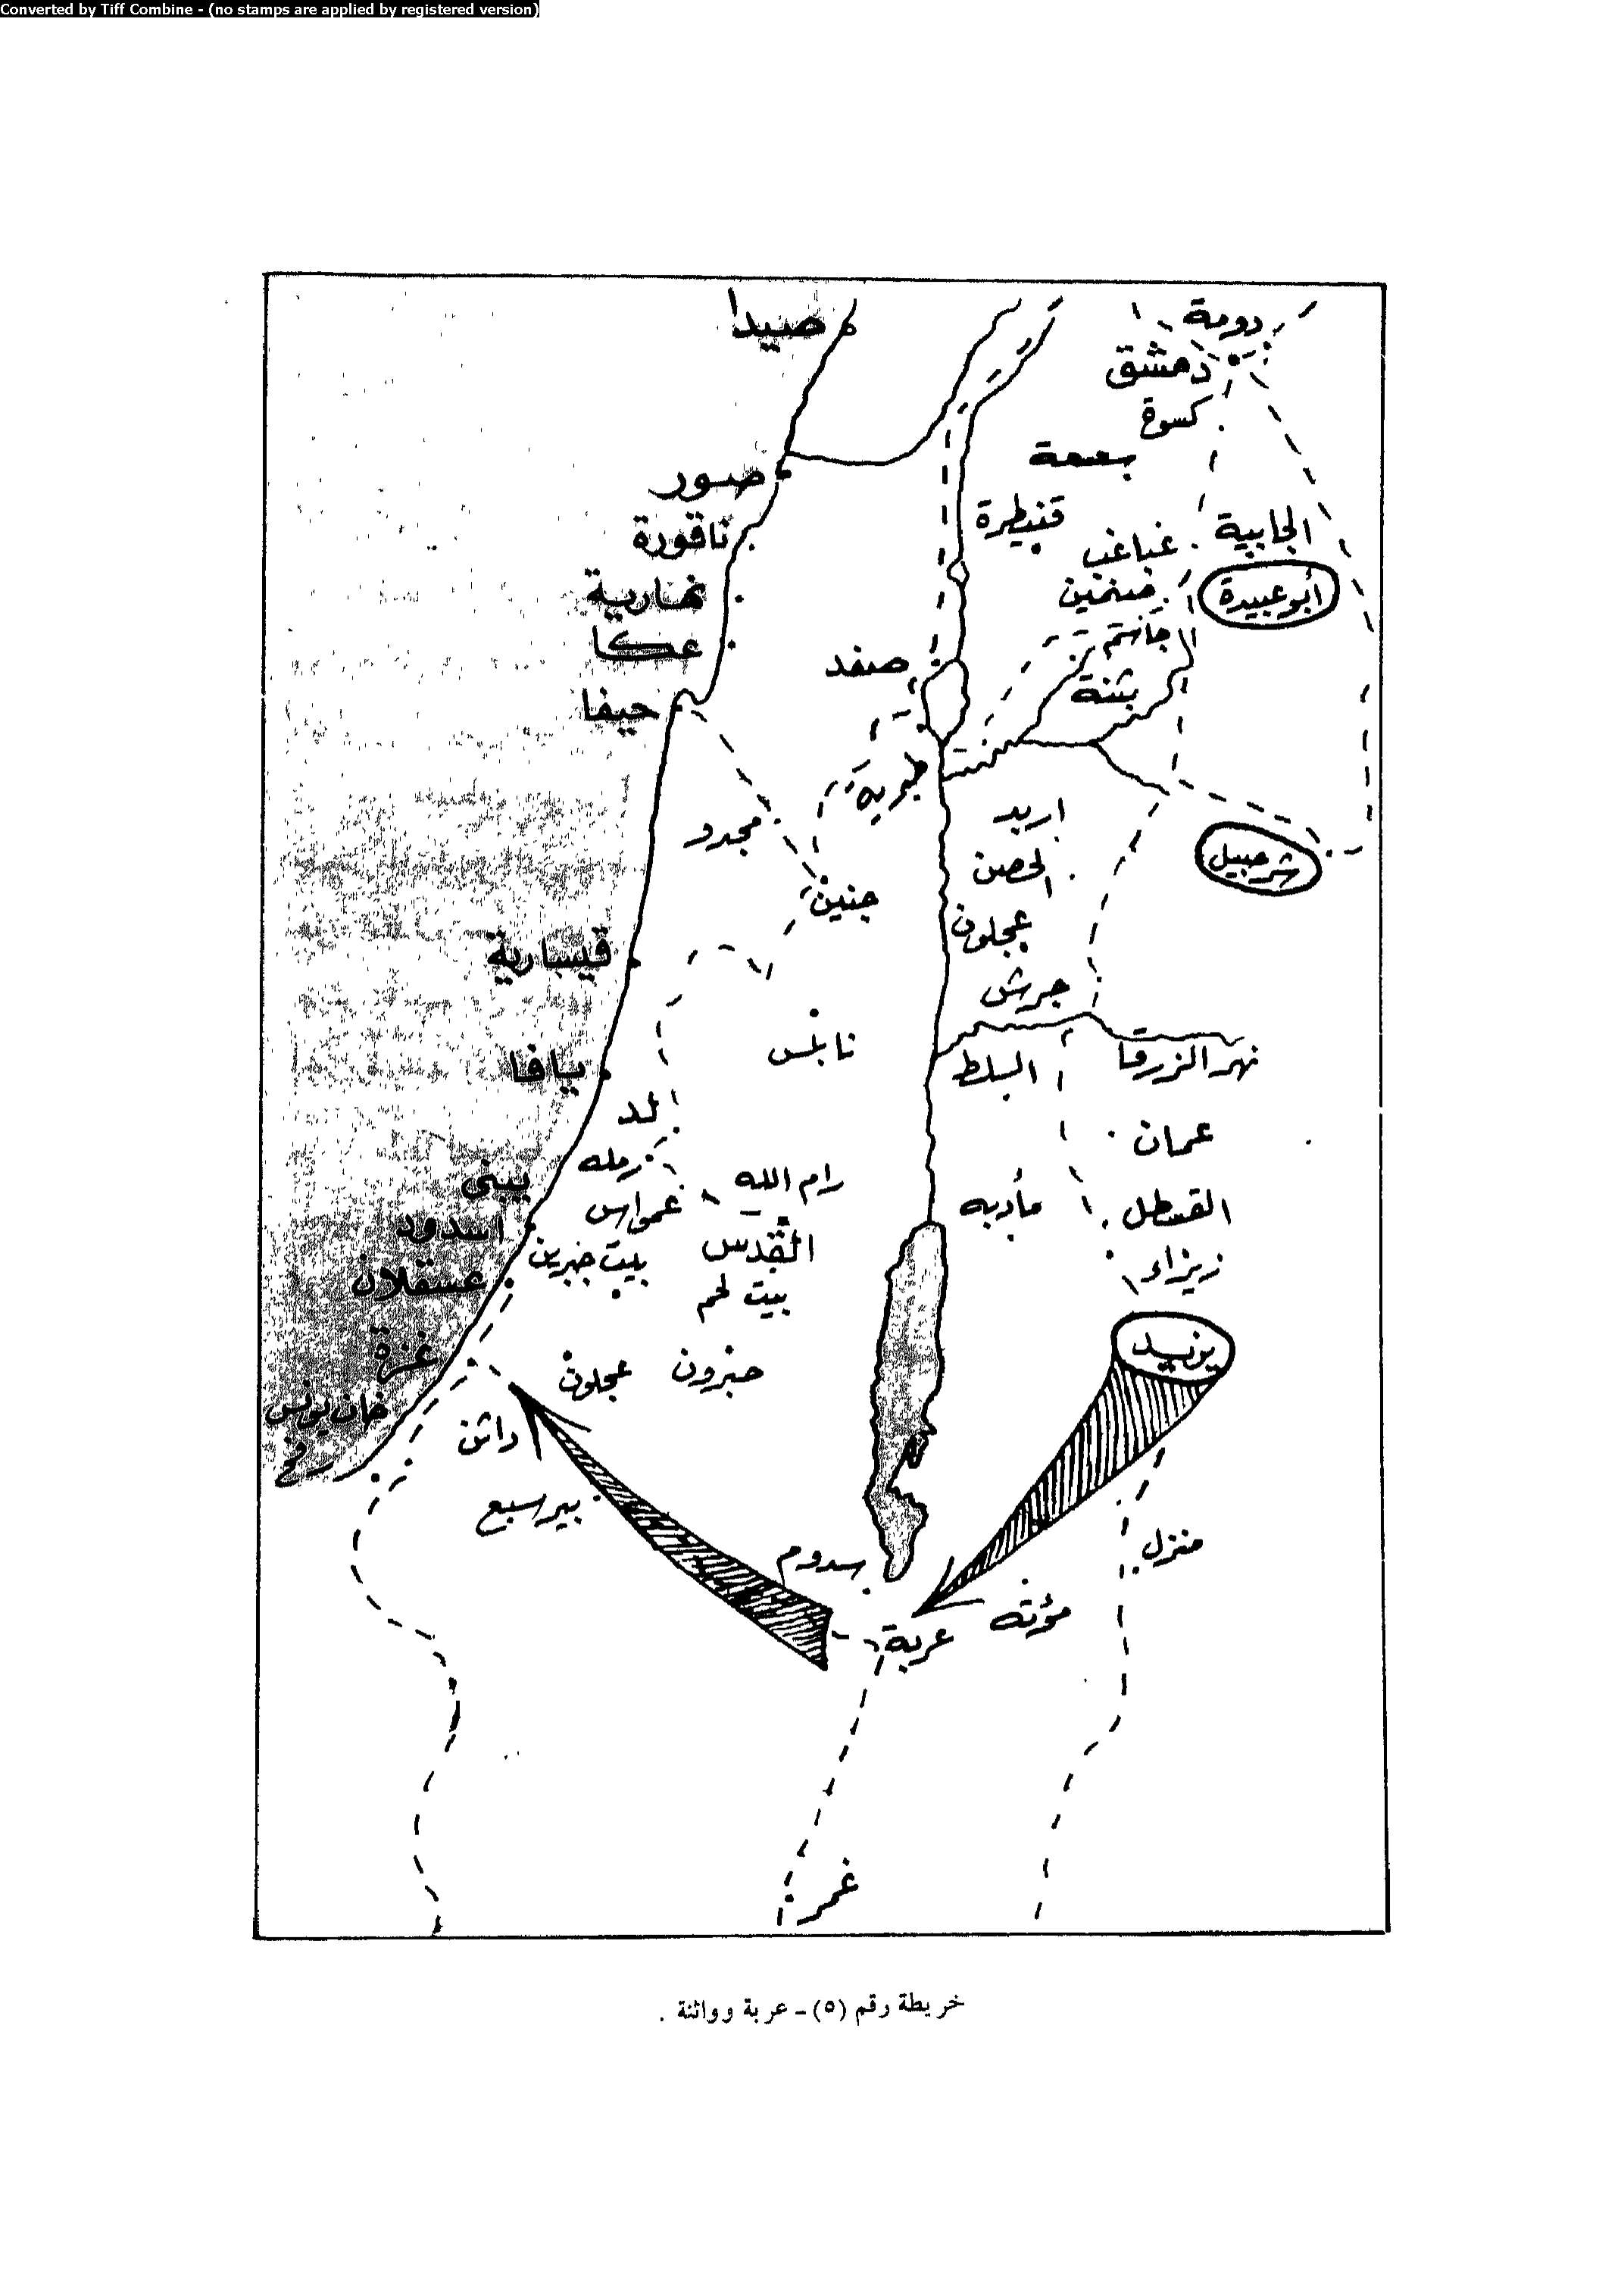 Converted by Tiff Combine - (no stamps are applied by registered version)
صيدا
دومة
دمشق
كسوة
صور
ناقورة
قنيطرة
الجابية
غباغب
نهارية
صنمين
أبو عبيدة
عكا
جاسم
صفد
بثنة
حيفا
طبرية
مجدو
اربد
شرحبيل
الحصن
جنين
عجلون
قيسارية
جرش
نابلس
نهر الزرقا
السلط
يافا
لد
عمان
رمله
رام الله
يبنى
عمواس
مأدبه
القسطل
اسدود
القدس
بيت جبرين
زيزاء
عسقلان
بيت لحم
يزيد
غزة
عجلون
حبرون
خان يونس
داثن
رفح
بير سبع
منزل
سدوم
مؤته
عربة
غمر
خريطة رقم (٥) - عربة وواثنة .